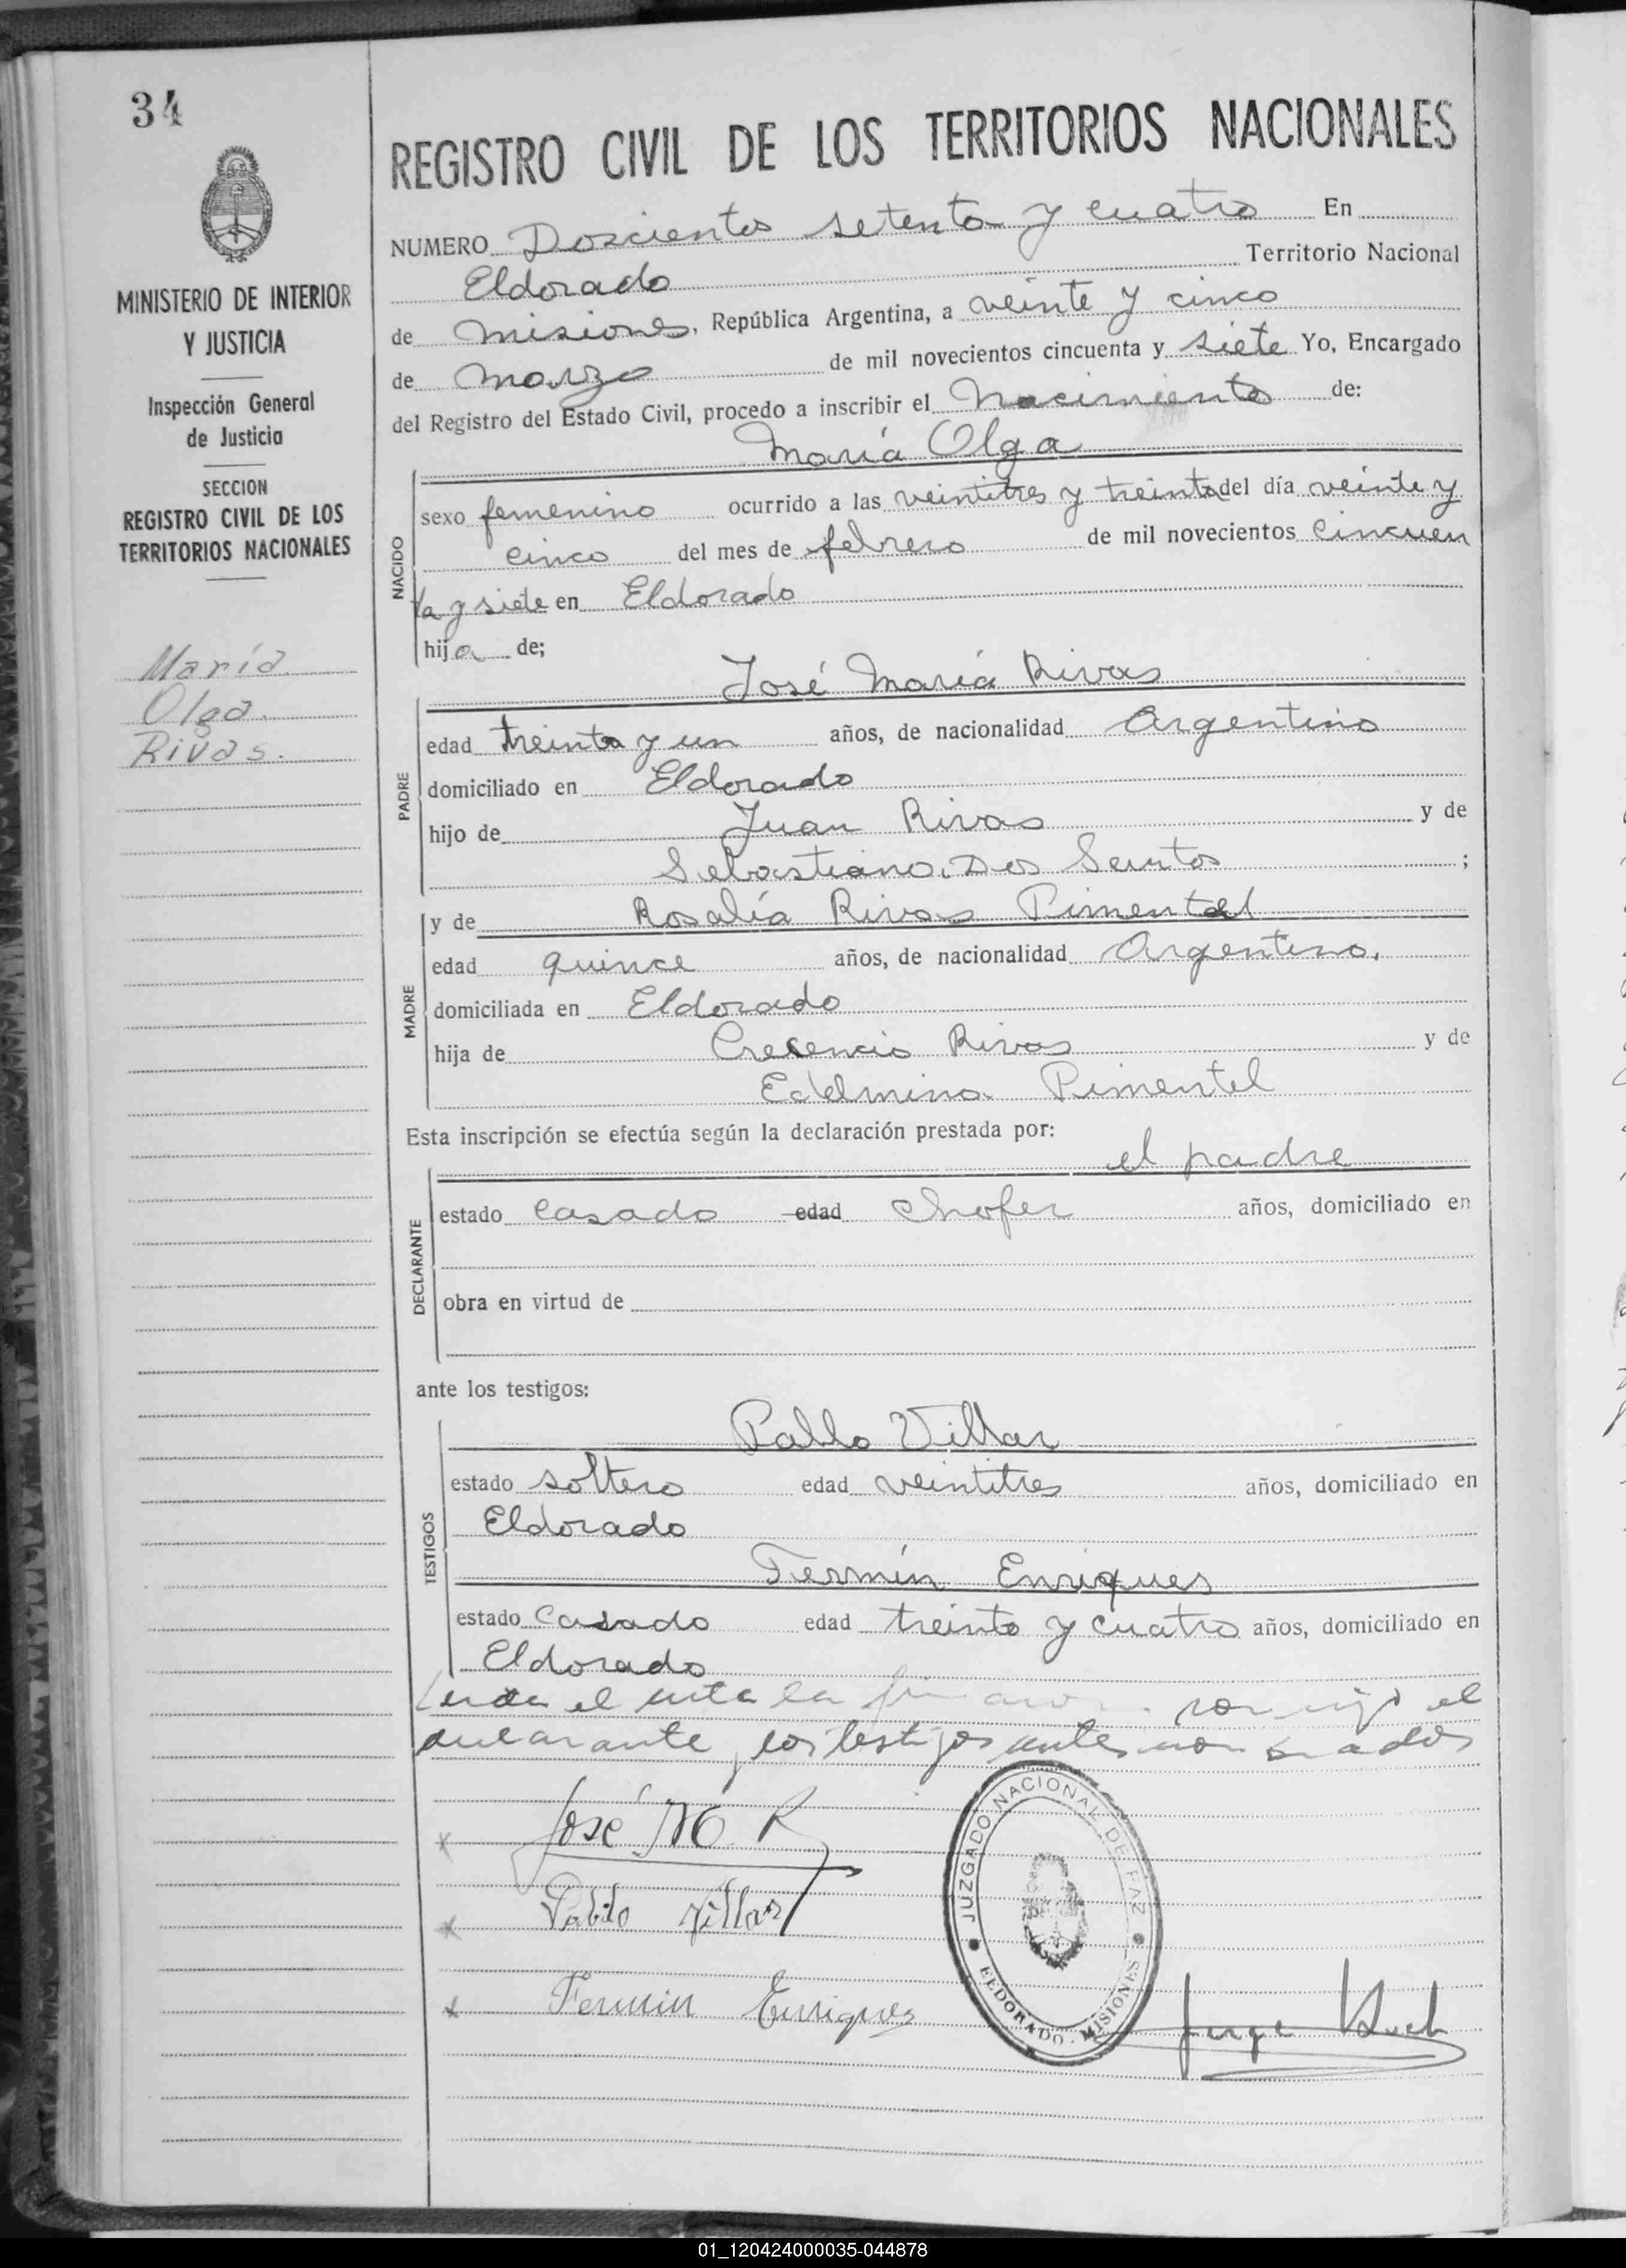 34
MINISTERIO DE INTERIOR
Y JUSTICIA
Inspección General
de Justicia
SECCION
REGISTRO CIVIL DE LOS
TERRITORIOS NACIONALES
María
Olga
Rivas.
REGISTRO CIVIL DE LOS TERRITORIOS NACIONALES
NUMERO Doscientos setenta y cuatro En
Eldorado Territorio Nacional
de Misiones, República Argentina, a veinte y cinco
de Marzo de mil novecientos cincuenta y siete Yo, Encargado
del Registro del Estado Civil, procedo a inscribir el Nacimiento de:
María Olga
NACIDO
sexo femenino ocurrido a las veintitres y treinta del día veinte y
cinco del mes de febrero de mil novecientos cincuen
ta y siete en Eldorado
hija de;
José María Rivas
PADRE
edad treinta y un años, de nacionalidad Argentino
domiciliado en Eldorado
hijo de Juan Rivas y de
Sebastiana Dos Santos ;
y de Rosalía Rivas Pimentel
MADRE
edad quince años, de nacionalidad Argentina.
domiciliada en Eldorado
hija de Cresencio Rivas y de
Edelmina Pimentel
Esta inscripción se efectúa según la declaración prestada por:
el padre
DECLARANTE
estado Casado edad Chofer años, domiciliado en
obra en virtud de
ante los testigos:
Pablo Villar
TESTIGOS
estado soltero edad veintitres años, domiciliado en
Eldorado
Fermín Enriques
estado Casado edad treinta y cuatro años, domiciliado en
Eldorado
el acta la el
declarante y los testigos antes nombrados
José M R
Pablo Villar
Fermin Enriques
JUZGADO NACIONAL DE PAZ
ELDORADO - MISIONES
Jorge
01_120424000035-044878